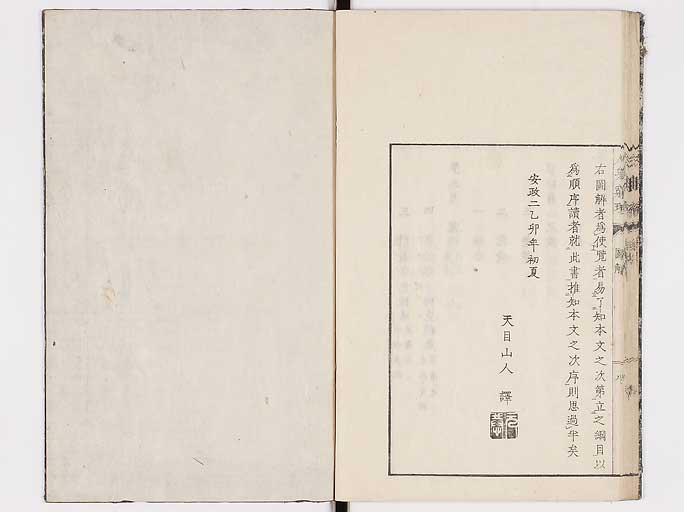 右圖解者為使覽者易了知本文之次第立之綱目以
為順序讀者就此書推知本文之次序則思過半矣
安政二乙卯年初夏
天目山人 譯